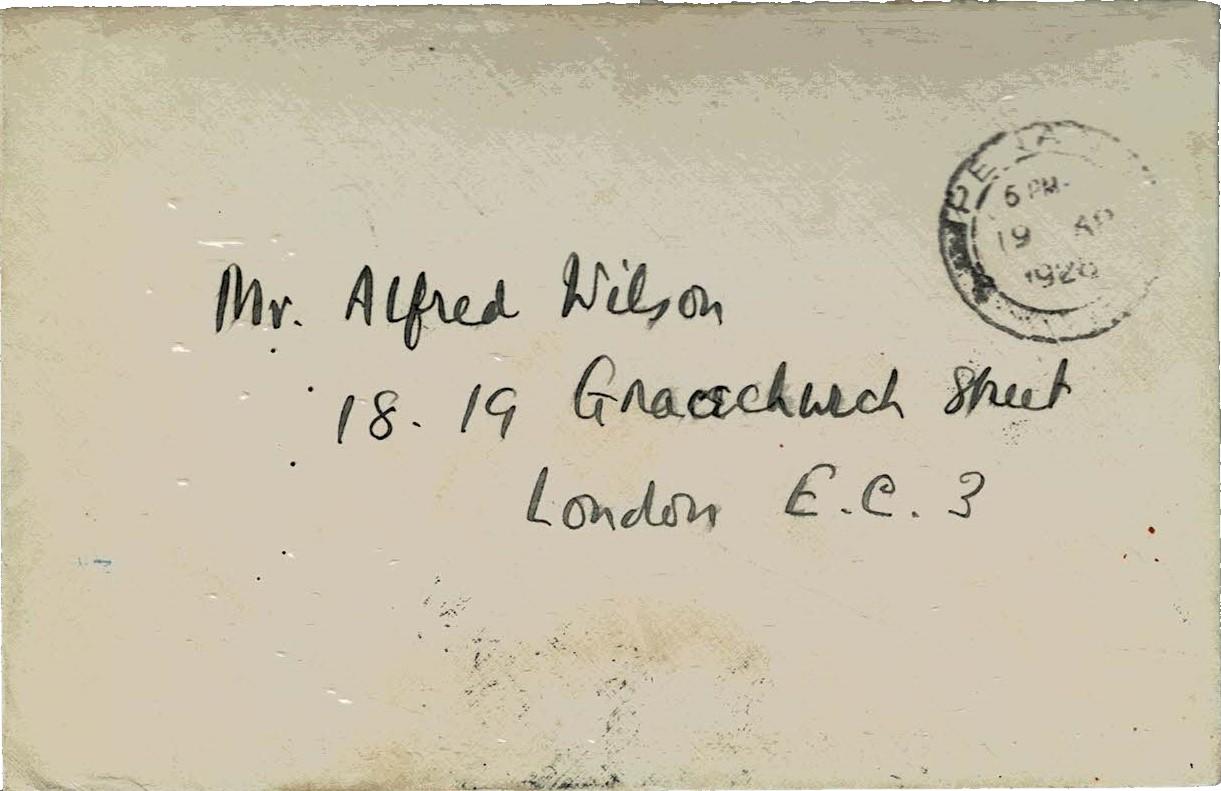 5 PM
19 AP
Mr. Alfred Wilson
18.19 Gracechurch Street
London E.C.3